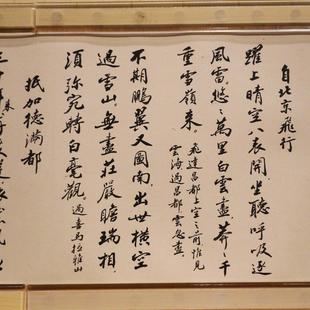 自北京飛行
躍上晴空八表開坐聽呼吸逐
風雷悠〻萬里白雲盡莽〻千
重雪嶺來
飛達昌都上空之前惟見
雲海過昌都雲忽盡
不期鵬翼又圖南出世橫空
過雪山無盡莊嚴瞻瑞相
須彌宛轉白毫觀
過喜馬拉雅山
抵加德滿都